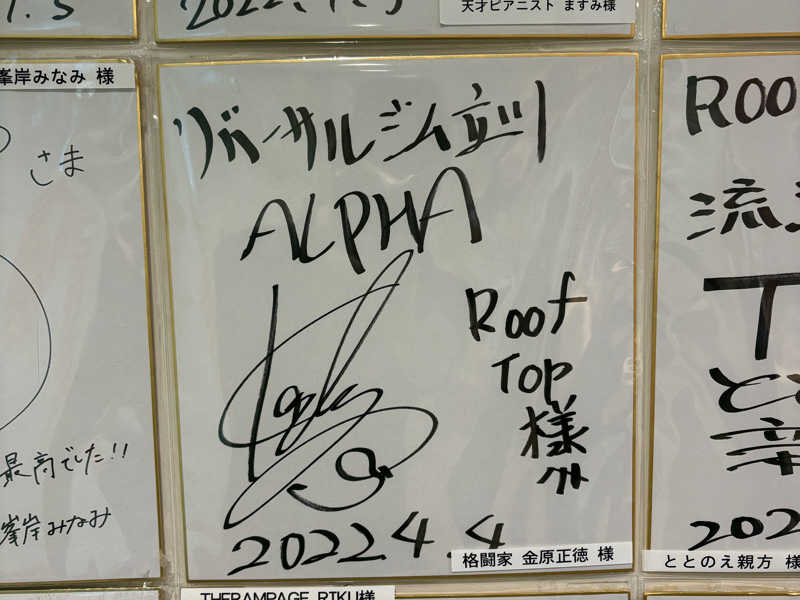 1.5
2022.
天才ピアニスト ますみ様
峯岸みなみ 様
さま
最高でした!!
峯岸みなみ
リバーサルジム立川
ALPHA
Roof
TOP
様
2022 4.4
格闘家 金原正徳 様
ROO
流
T
と
202
ととのえ親方 様
THERAMPAGE RIKU様